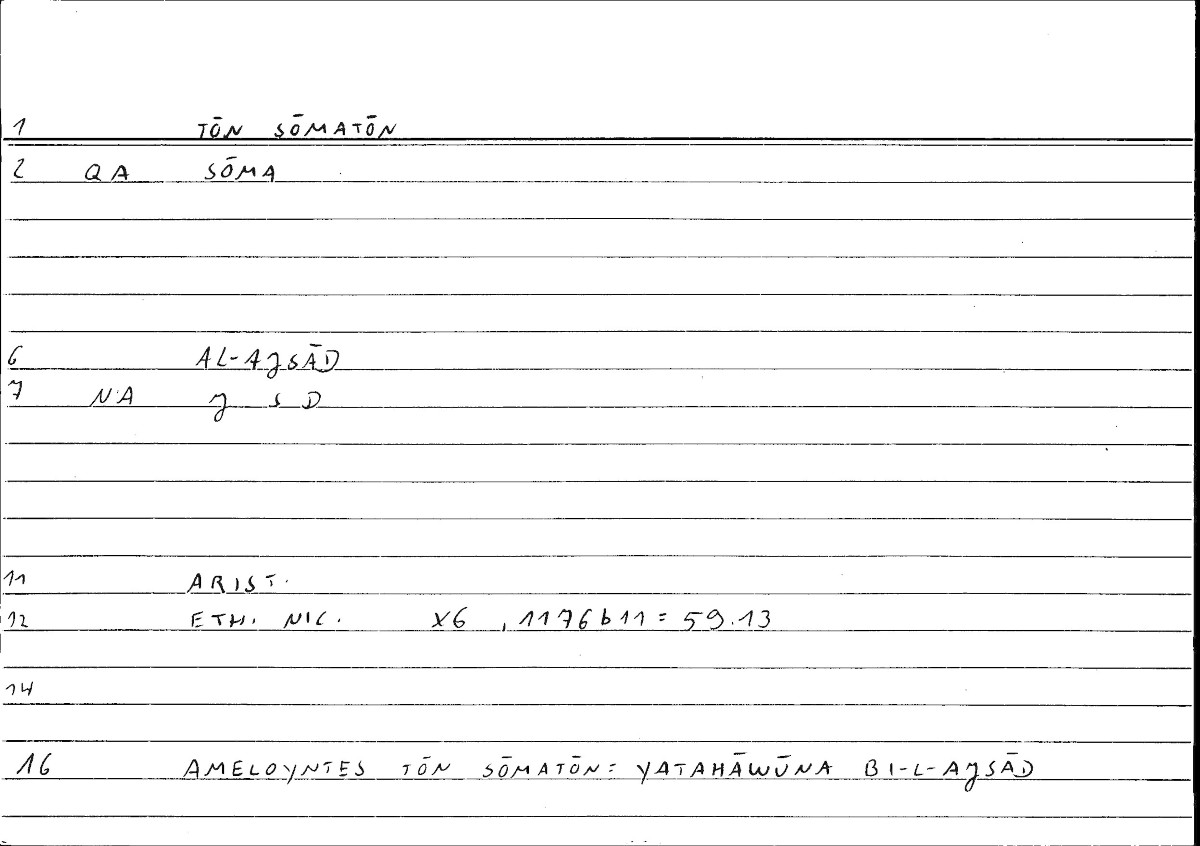 1 TŌN SŌMATŌN
2 QA SŌMA
6 AL-AJSĀD
7 NA J S D
11 ARIST.
12 ETH. NIC. X6 , 1176b11 = 59.13
14
16 AMELOYNTES TŌN SŌMATŌN = YATAHĀWŪNA BI-L-AJSĀD